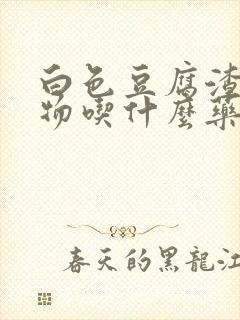 白色豆腐渣
物喫什麼藥
春天的黑龍江